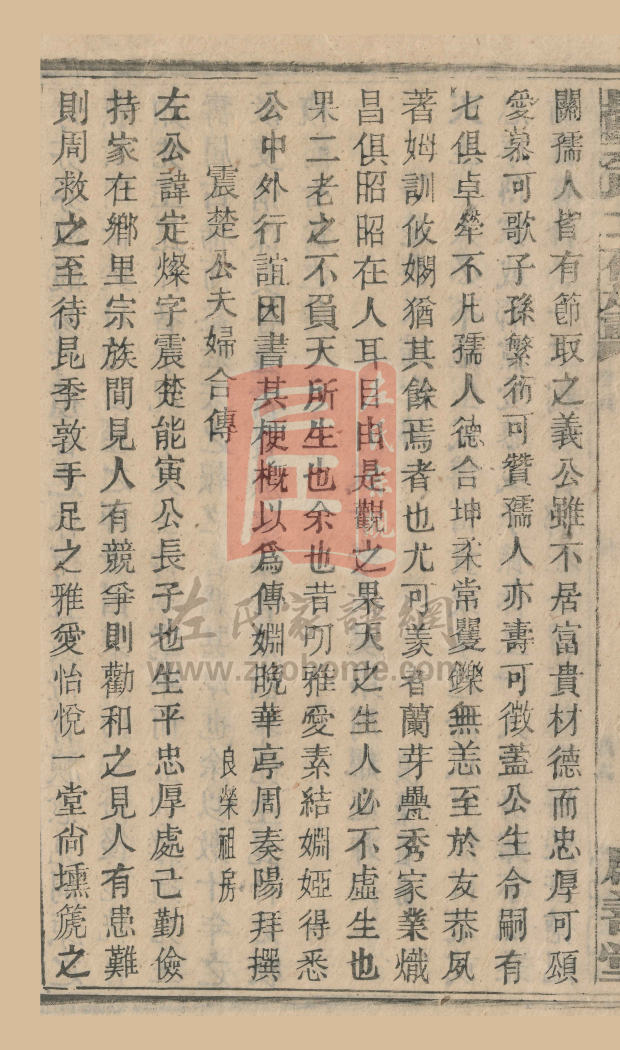 關孺人皆有節取之義公雖不居富貴材德而忠厚可頌
愛慕可歌子孫繁衍可贊孺人亦壽可徵蓋公生令嗣有
七俱卓犖不凡孺人德合坤柔常矍鑠無恙至於友恭夙
著姆訓攸嫻猶其餘焉者也尤可羨者蘭芽疊秀家業熾
昌俱昭昭在人耳目由是觀之果天之生人必不虛生也
果二老之不負天所生也余也昔叨雅愛素結婣婭得悉
公中外行誼因書其梗概以爲傳婣晚華亭周奏陽拜撰
震楚公夫婦合傳
良榮祖房
左公諱定燦字震楚能寅公長子也生平忠厚處己勤儉
持家在鄉里宗族間見人有競爭則勸和之見人有患難
則周救之至待昆季敦手足之雅愛怡悅一堂尙壎篪之
左氏家譜網
www.zuohome.com